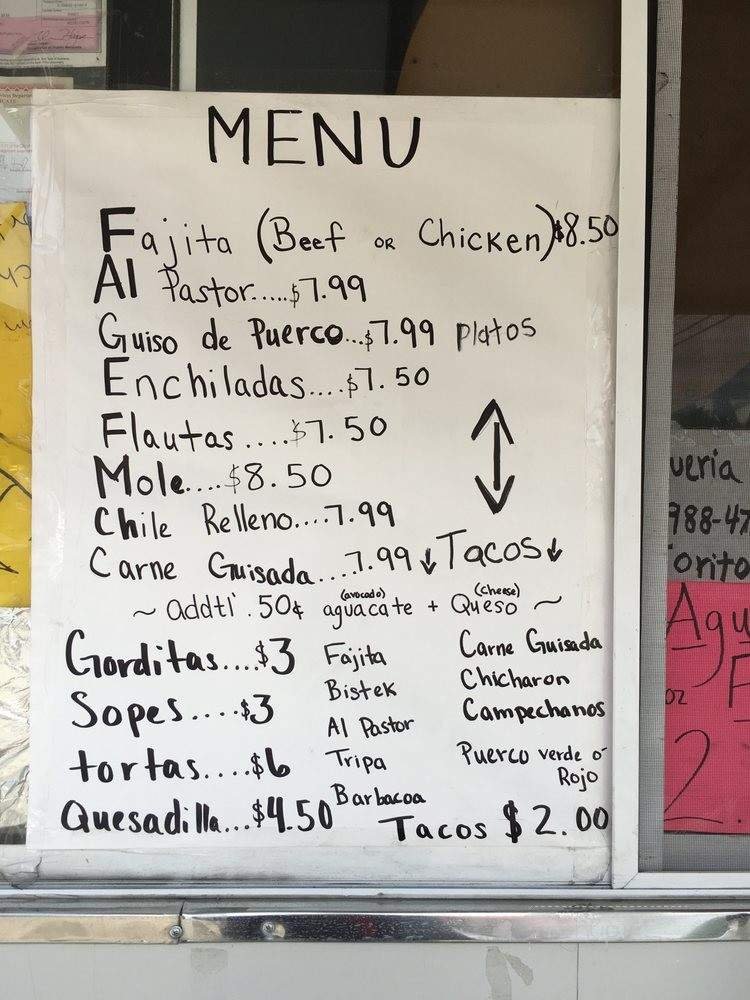 MENU
Fajita (Beef OR Chicken) $8.50
Al Pastor.....$7.99
Guiso de Puerco...$7.99 Platos
Enchiladas....$7.50
Flautas ....$7.50
Mole....$8.50
Chile Relleno....7.99
Carne Guisada...7.99 ↓Tacos↓
~ addtl .50¢ aguacate (avocado) + Queso (cheese) ~
Gorditas....$3
Sopes....$3
tortas....$6
Quesadilla...$4.50
Fajita
Bistek
Al Pastor
Tripa
Barbacoa
Carne Guisada
Chicharon
Campechanos
Puerco verde o´
Rojo
Tacos $2.00
ueria
988-47
orito
Agu
oz F
2.